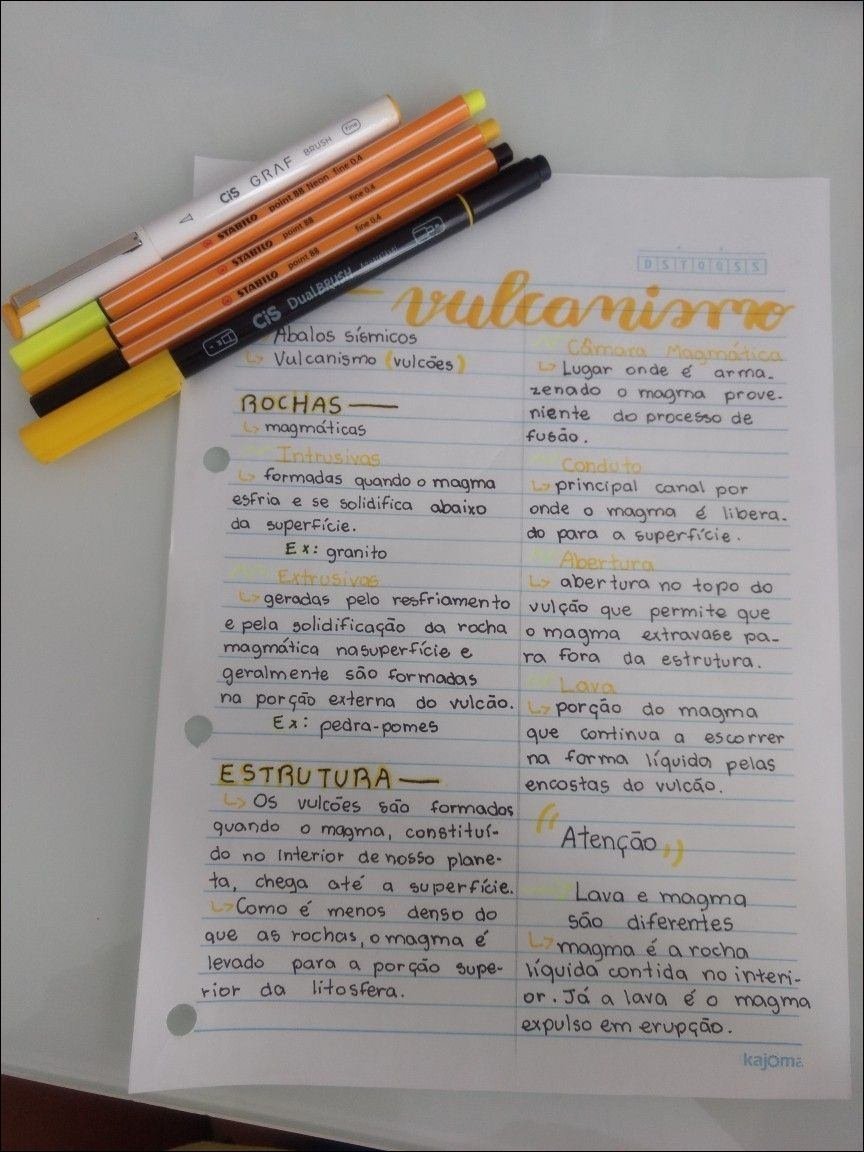 CiS GRAF BRUSH Fine
STABILO point 88 Neon fine 0.4
STABILO point 88 fine 0.4
STABILO point 88 fine 0.4
CiS DualBRUSH
D S T Q Q S S
vulcanismo
Abalos sísmicos
↳ Vulcanismo (vulcões)
ROCHAS —
↳ magmáticas
Intrusivas
↳ formadas quando o magma
esfria e se solidifica abaixo
da superfície.
Ex: granito
Extrusivas
↳ geradas pelo resfriamento
e pela solidificação da rocha
magmática nasuperfície e
geralmente são formadas
na porção externa do vulcão.
Ex: pedra-pomes
ESTRUTURA —
↳ Os vulcões são formados
quando o magma, constituí-
do no interior de nosso plane-
ta, chega até a superfície.
↳ Como é menos denso do
que as rochas, o magma é
levado para a porção supe-
rior da litosfera.
Câmara Magmática
↳ Lugar onde é arma-
zenado o magma prove-
niente do processo de
fusão.
Conduto
↳ principal canal por
onde o magma é libera-
do para a superfície.
Abertura
↳ abertura no topo do
vulção que permite que
o magma extravase pa-
ra fora da estrutura.
Lava
↳ porção do magma
que continua a escorrer
na forma líquida pelas
encostas do vulcão.
"Atenção"
→ Lava e magma
são diferentes
↳ magma é a rocha
líquida contida no interi-
or. Já a lava é o magma
expulso em erupção.
kajoma